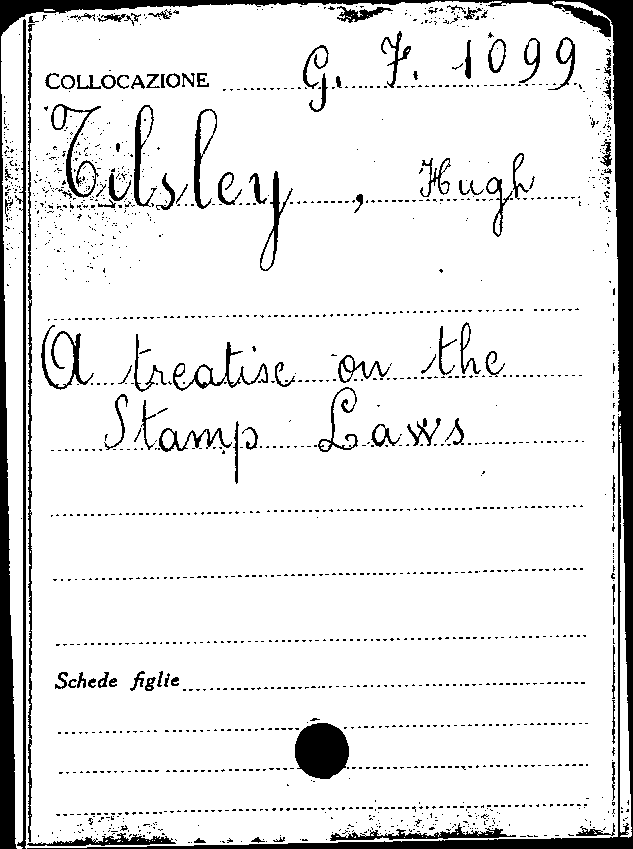 COLLOCAZIONE G. F. 1099
Tilsley, Hugh
A treatise on the
Stamp Laws
Schede figlie